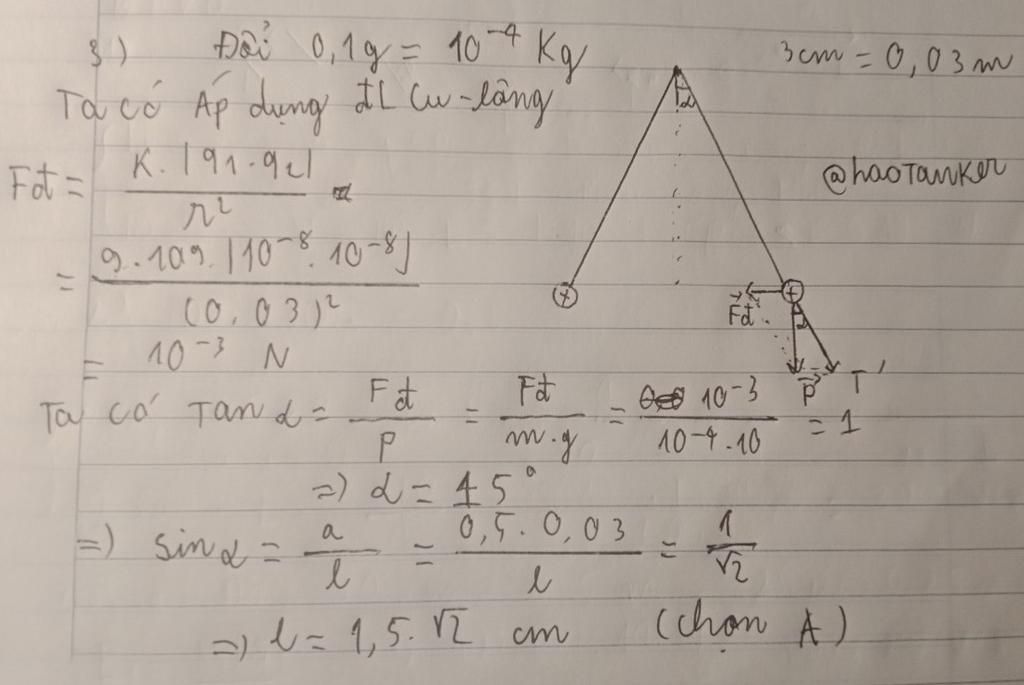 3) Đổi 0,1g = 10⁻⁴ Kg 3cm = 0,03m
Ta có Áp dụng đL Cu-lông
@haoTanker
Fđ = K.|q1.q2| / r²
= 9.109.|10⁻⁸.10⁻⁸| / (0,03)²
= 10⁻³ N
α
+ +
Fđ α
P T'
Ta có Tan α = Fđ / P = Fđ / m.g = 10⁻³ / 10⁻⁴.10 = 1
=) α = 45°
=) sin α = a / l = 0,5.0,03 / l = 1 / √2
=) l = 1,5.√2 cm (chọn A)